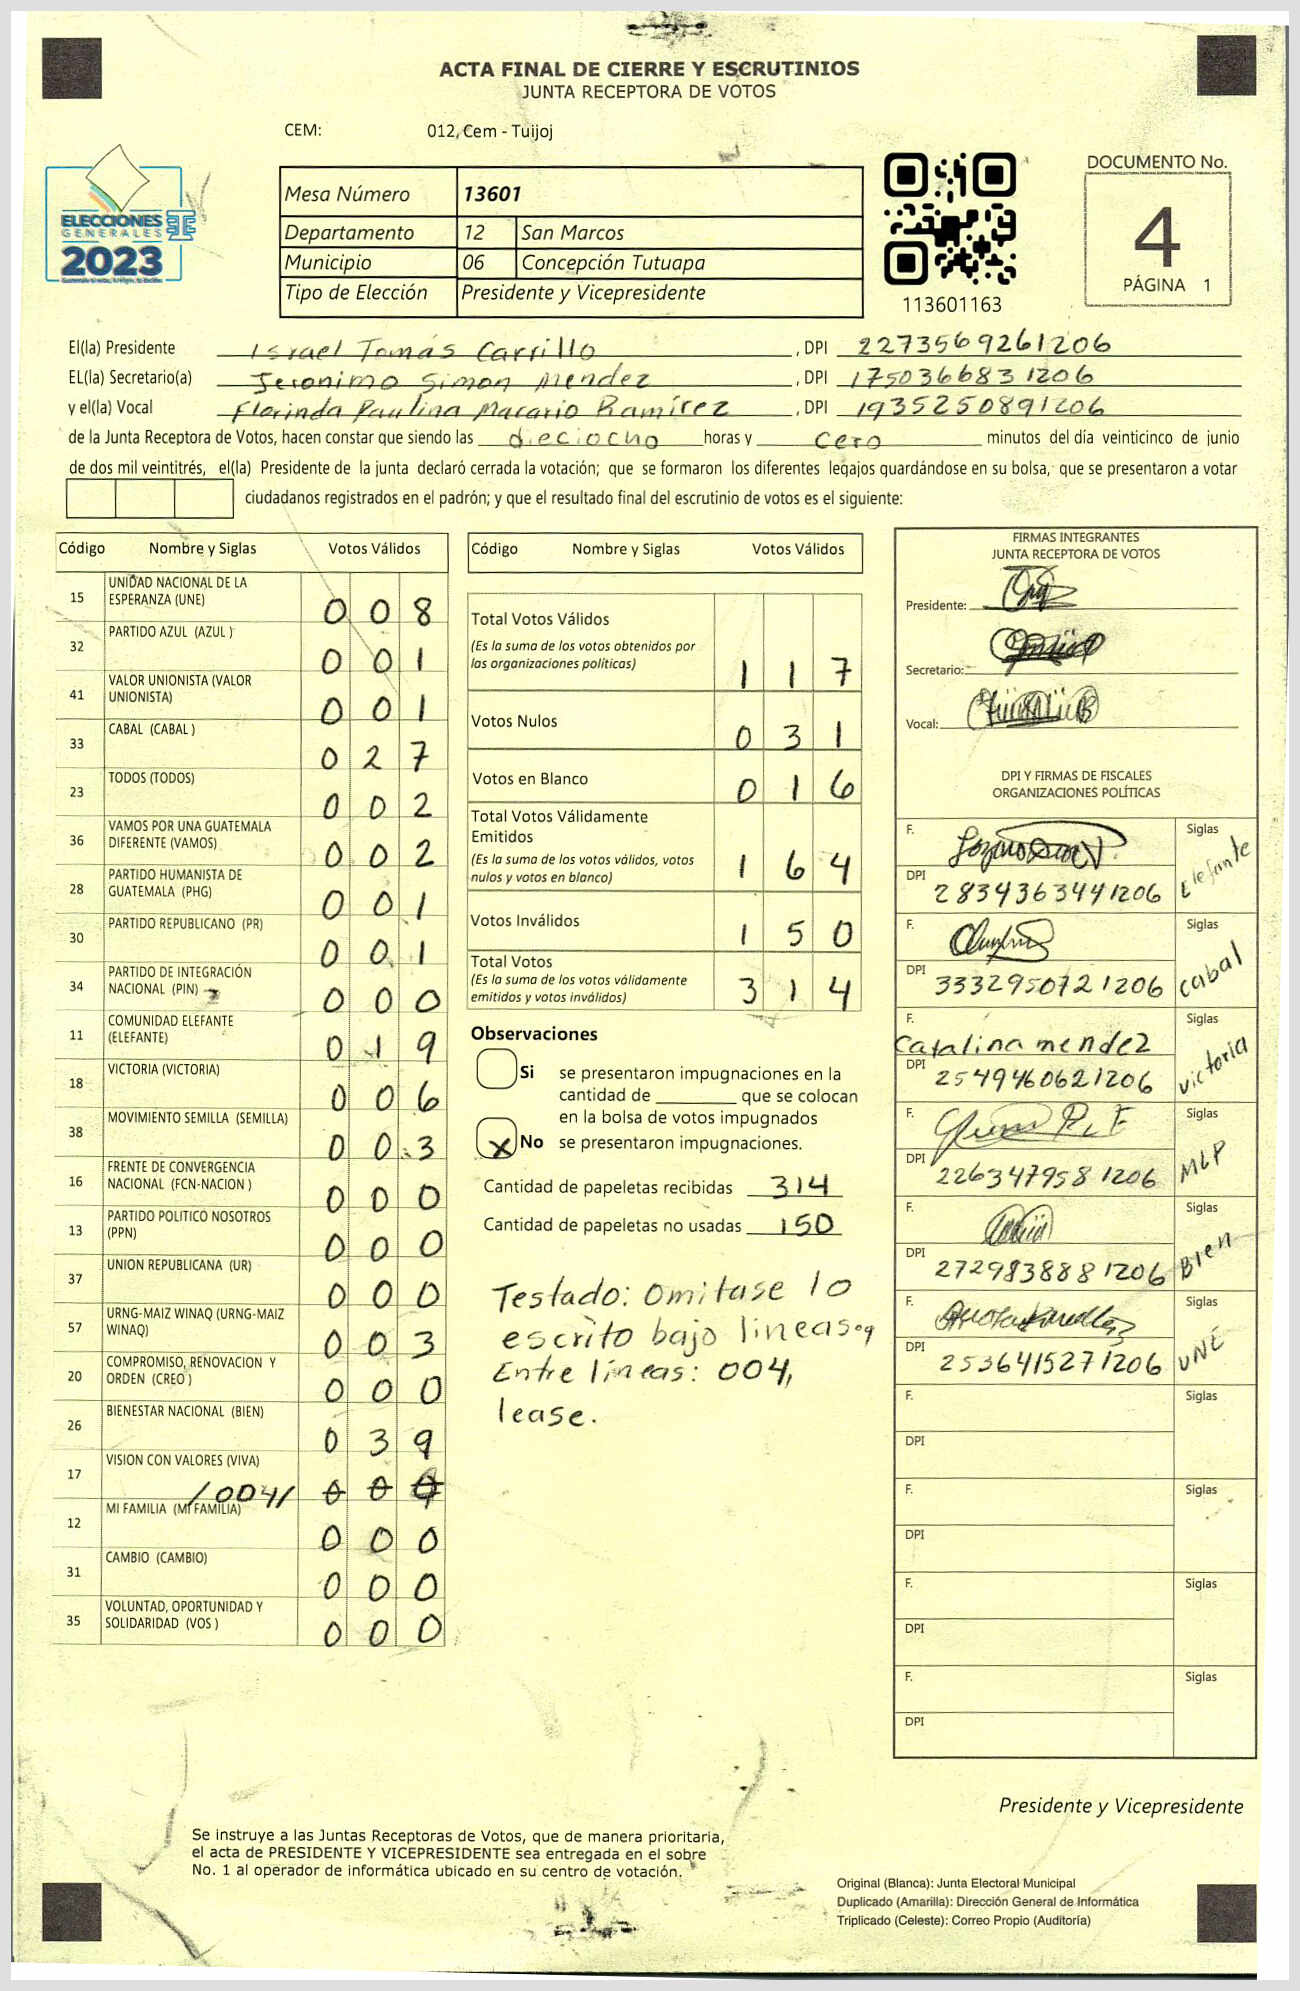 ACTA FINAL DE CIERRE Y ESCRUTINIOS
JUNTA RECEPTORA DE VOTOS
CEM: 012, Cem - Tuijoj
ELECCIONES
GENERALES
2023
Mesa Número 13601
Departamento 12 San Marcos
Municipio 06 Concepción Tutuapa
Tipo de Elección Presidente y Vicepresidente
113601163
DOCUMENTO No.
4
PÁGINA 1
El(la) Presidente Israel Tomás Carrillo , DPI 2273569261206
EL(la) Secretario(a) Jeronimo Simon Mendez , DPI 1750366831206
y el(la) Vocal Florinda Paulina Macario Ramírez , DPI 1935250891206
de la Junta Receptora de Votos, hacen constar que siendo las dieciocho horas y cero minutos del día veinticinco de junio
de dos mil veintitrés, el(la) Presidente de la junta declaró cerrada la votación; que se formaron los diferentes legajos guardándose en su bolsa, que se presentaron a votar
ciudadanos registrados en el padrón; y que el resultado final del escrutinio de votos es el siguiente:
Código Nombre y Siglas Votos Válidos
15 UNIDAD NACIONAL DE LA ESPERANZA (UNE) 0 0 8
32 PARTIDO AZUL (AZUL ) 0 0 1
41 VALOR UNIONISTA (VALOR UNIONISTA) 0 0 1
33 CABAL (CABAL ) 0 2 7
23 TODOS (TODOS) 0 0 2
36 VAMOS POR UNA GUATEMALA DIFERENTE (VAMOS) 0 0 2
28 PARTIDO HUMANISTA DE GUATEMALA (PHG) 0 0 1
30 PARTIDO REPUBLICANO (PR) 0 0 1
34 PARTIDO DE INTEGRACIÓN NACIONAL (PIN) 0 0 0
11 COMUNIDAD ELEFANTE (ELEFANTE) 0 1 9
18 VICTORIA (VICTORIA) 0 0 6
38 MOVIMIENTO SEMILLA (SEMILLA) 0 0 3
16 FRENTE DE CONVERGENCIA NACIONAL (FCN-NACION ) 0 0 0
13 PARTIDO POLITICO NOSOTROS (PPN) 0 0 0
37 UNION REPUBLICANA (UR) 0 0 0
57 URNG-MAIZ WINAQ (URNG-MAIZ WINAQ) 0 0 3
20 COMPROMISO, RENOVACION Y ORDEN (CREO ) 0 0 0
26 BIENESTAR NACIONAL (BIEN) 0 3 9
17 VISION CON VALORES (VIVA) /004/ 0 0
12 MI FAMILIA (MI FAMILIA) 0 0 0
31 CAMBIO (CAMBIO) 0 0 0
35 VOLUNTAD, OPORTUNIDAD Y SOLIDARIDAD (VOS ) 0 0 0
Código Nombre y Siglas Votos Válidos
Total Votos Válidos
(Es la suma de los votos obtenidos por
las organizaciones políticas) 1 1 7
Votos Nulos 0 3 1
Votos en Blanco 0 1 6
Total Votos Válidamente
Emitidos
(Es la suma de los votos válidos, votos
nulos y votos en blanco) 1 6 4
Votos Inválidos 1 5 0
Total Votos
(Es la suma de los votos válidamente
emitidos y votos inválidos) 3 1 4
Observaciones
Si se presentaron impugnaciones en la
cantidad de ________ que se colocan
en la bolsa de votos impugnados
x No se presentaron impugnaciones.
Cantidad de papeletas recibidas 314
Cantidad de papeletas no usadas 150
Testado: Omitase lo
escrito bajo líneas.
Entre líneas: 004,
lease.
FIRMAS INTEGRANTES
JUNTA RECEPTORA DE VOTOS
Presidente:
Secretario:
Vocal:
DPI Y FIRMAS DE FISCALES
ORGANIZACIONES POLÍTICAS
F. Siglas Elefante
DPI 2834363441206
F. Siglas cabal
DPI 3332950721206
F. Catalina mendez Siglas victoria
DPI 2549460621206
F. Siglas MLP
DPI 2263479581206
F. Siglas Bien
DPI 2729838881206
F. Siglas UNE
DPI 2536415271206
F. Siglas
DPI
F. Siglas
DPI
F. Siglas
DPI
F. Siglas
DPI
Presidente y Vicepresidente
Se instruye a las Juntas Receptoras de Votos, que de manera prioritaria,
el acta de PRESIDENTE Y VICEPRESIDENTE sea entregada en el sobre
No. 1 al operador de informática ubicado en su centro de votación.
Original (Blanca): Junta Electoral Municipal
Duplicado (Amarilla): Dirección General de Informática
Triplicado (Celeste): Correo Propio (Auditoría)